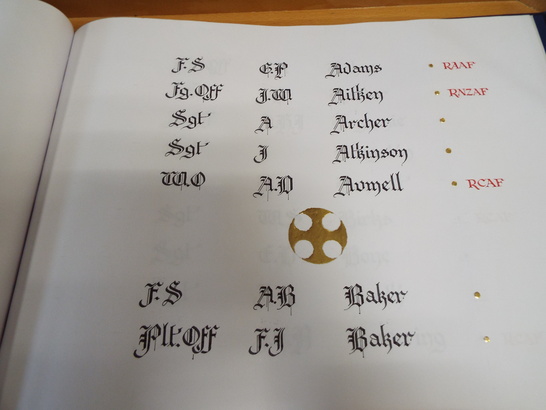 F.S G.P Adams RAAF
Fg.Off J.W Aitken RNZAF
Sgt A Archer
Sgt J Atkinson
W.O A.D Aumell RCAF
F.S A.B Baker
Plt.Off F.J Baker